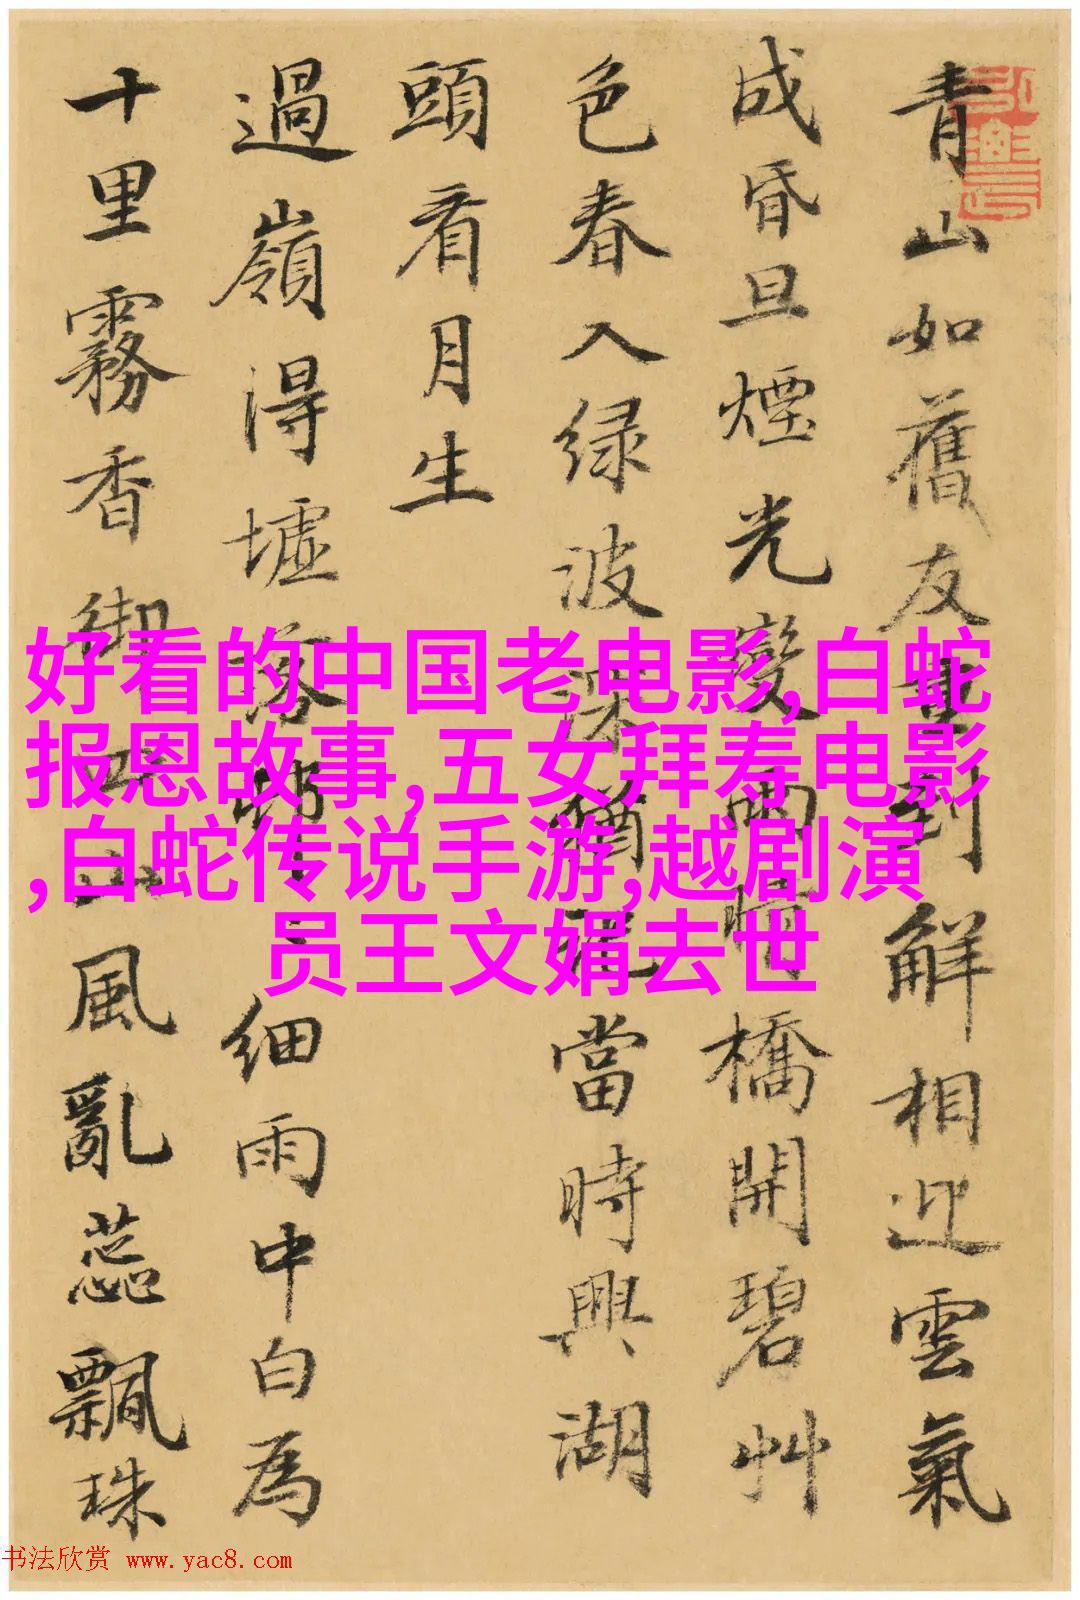 青山如舊友重到解相迎雲氣
成昏旦煙光變雨晴橋開碧艸
色春入绿波深猶記當時興湖
頭看月生
過嶺得墟落野
细雨中白為
十里霧香
風亂蕊飄珠
好看的中国老电影,白蛇
报恩故事,五女拜寿电影
,白蛇传说手游,越剧演
员王文娟去世
书法欣赏 www.yac8.com